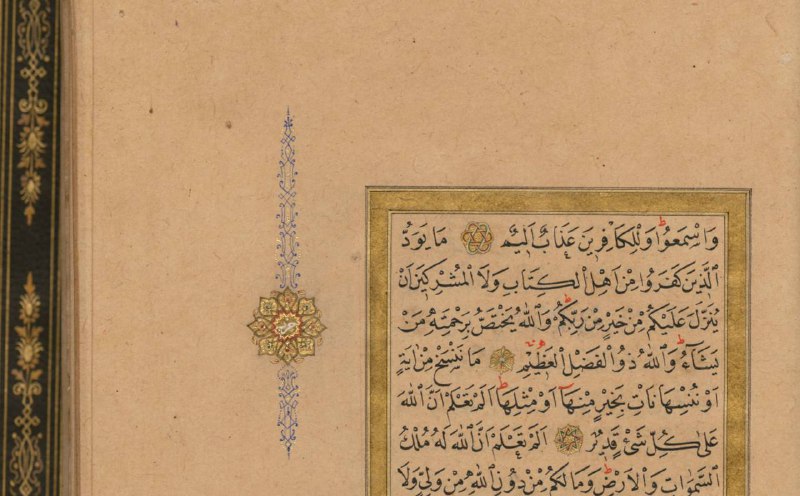 وَاسْمَعُوا وَلِلْكَافِرِينَ عَذَابٌ اَلِيمٌ مَا يَوَدُّ
الَّذِينَ كَفَرُوا مِنْ اَهْلِ الْكِتَابِ وَلَا الْمُشْرِكِينَ اَنْ
يُنَزَّلَ عَلَيْكُمْ مِنْ خَيْرٍ مِنْ رَبِّكُمْ وَاللّٰهُ يَخْتَصُّ بِرَحْمَتِهِ مَنْ
يَشَاءُ وَاللّٰهُ ذُو الْفَضْلِ الْعَظِيمِ مَا نَنْسَخْ مِنْ اٰيَةٍ
اَوْ نُنْسِهَا نَاْتِ بِخَيْرٍ مِنْهَا اَوْ مِثْلِهَا اَلَمْ تَعْلَمْ اَنَّ اللّٰهَ
عَلٰى كُلِّ شَيْءٍ قَدِيرٌ اَلَمْ تَعْلَمْ اَنَّ اللّٰهَ لَهُ مُلْكُ
السَّمٰوَاتِ وَالْاَرْضِ وَمَا لَكُمْ مِنْ دُونِ اللّٰهِ مِنْ وَلِيٍّ وَلَا